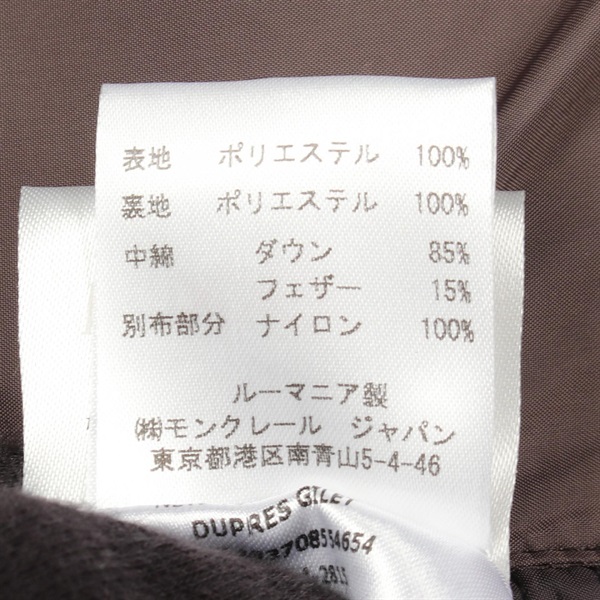 表地 ポリエステル 100%
裏地 ポリエステル 100%
中綿 ダウン 85%
フェザー 15%
別布部分 ナイロン 100%
ルーマニア製
㈱モンクレール ジャパン
東京都港区南青山5-4-46
DUPRES GILET